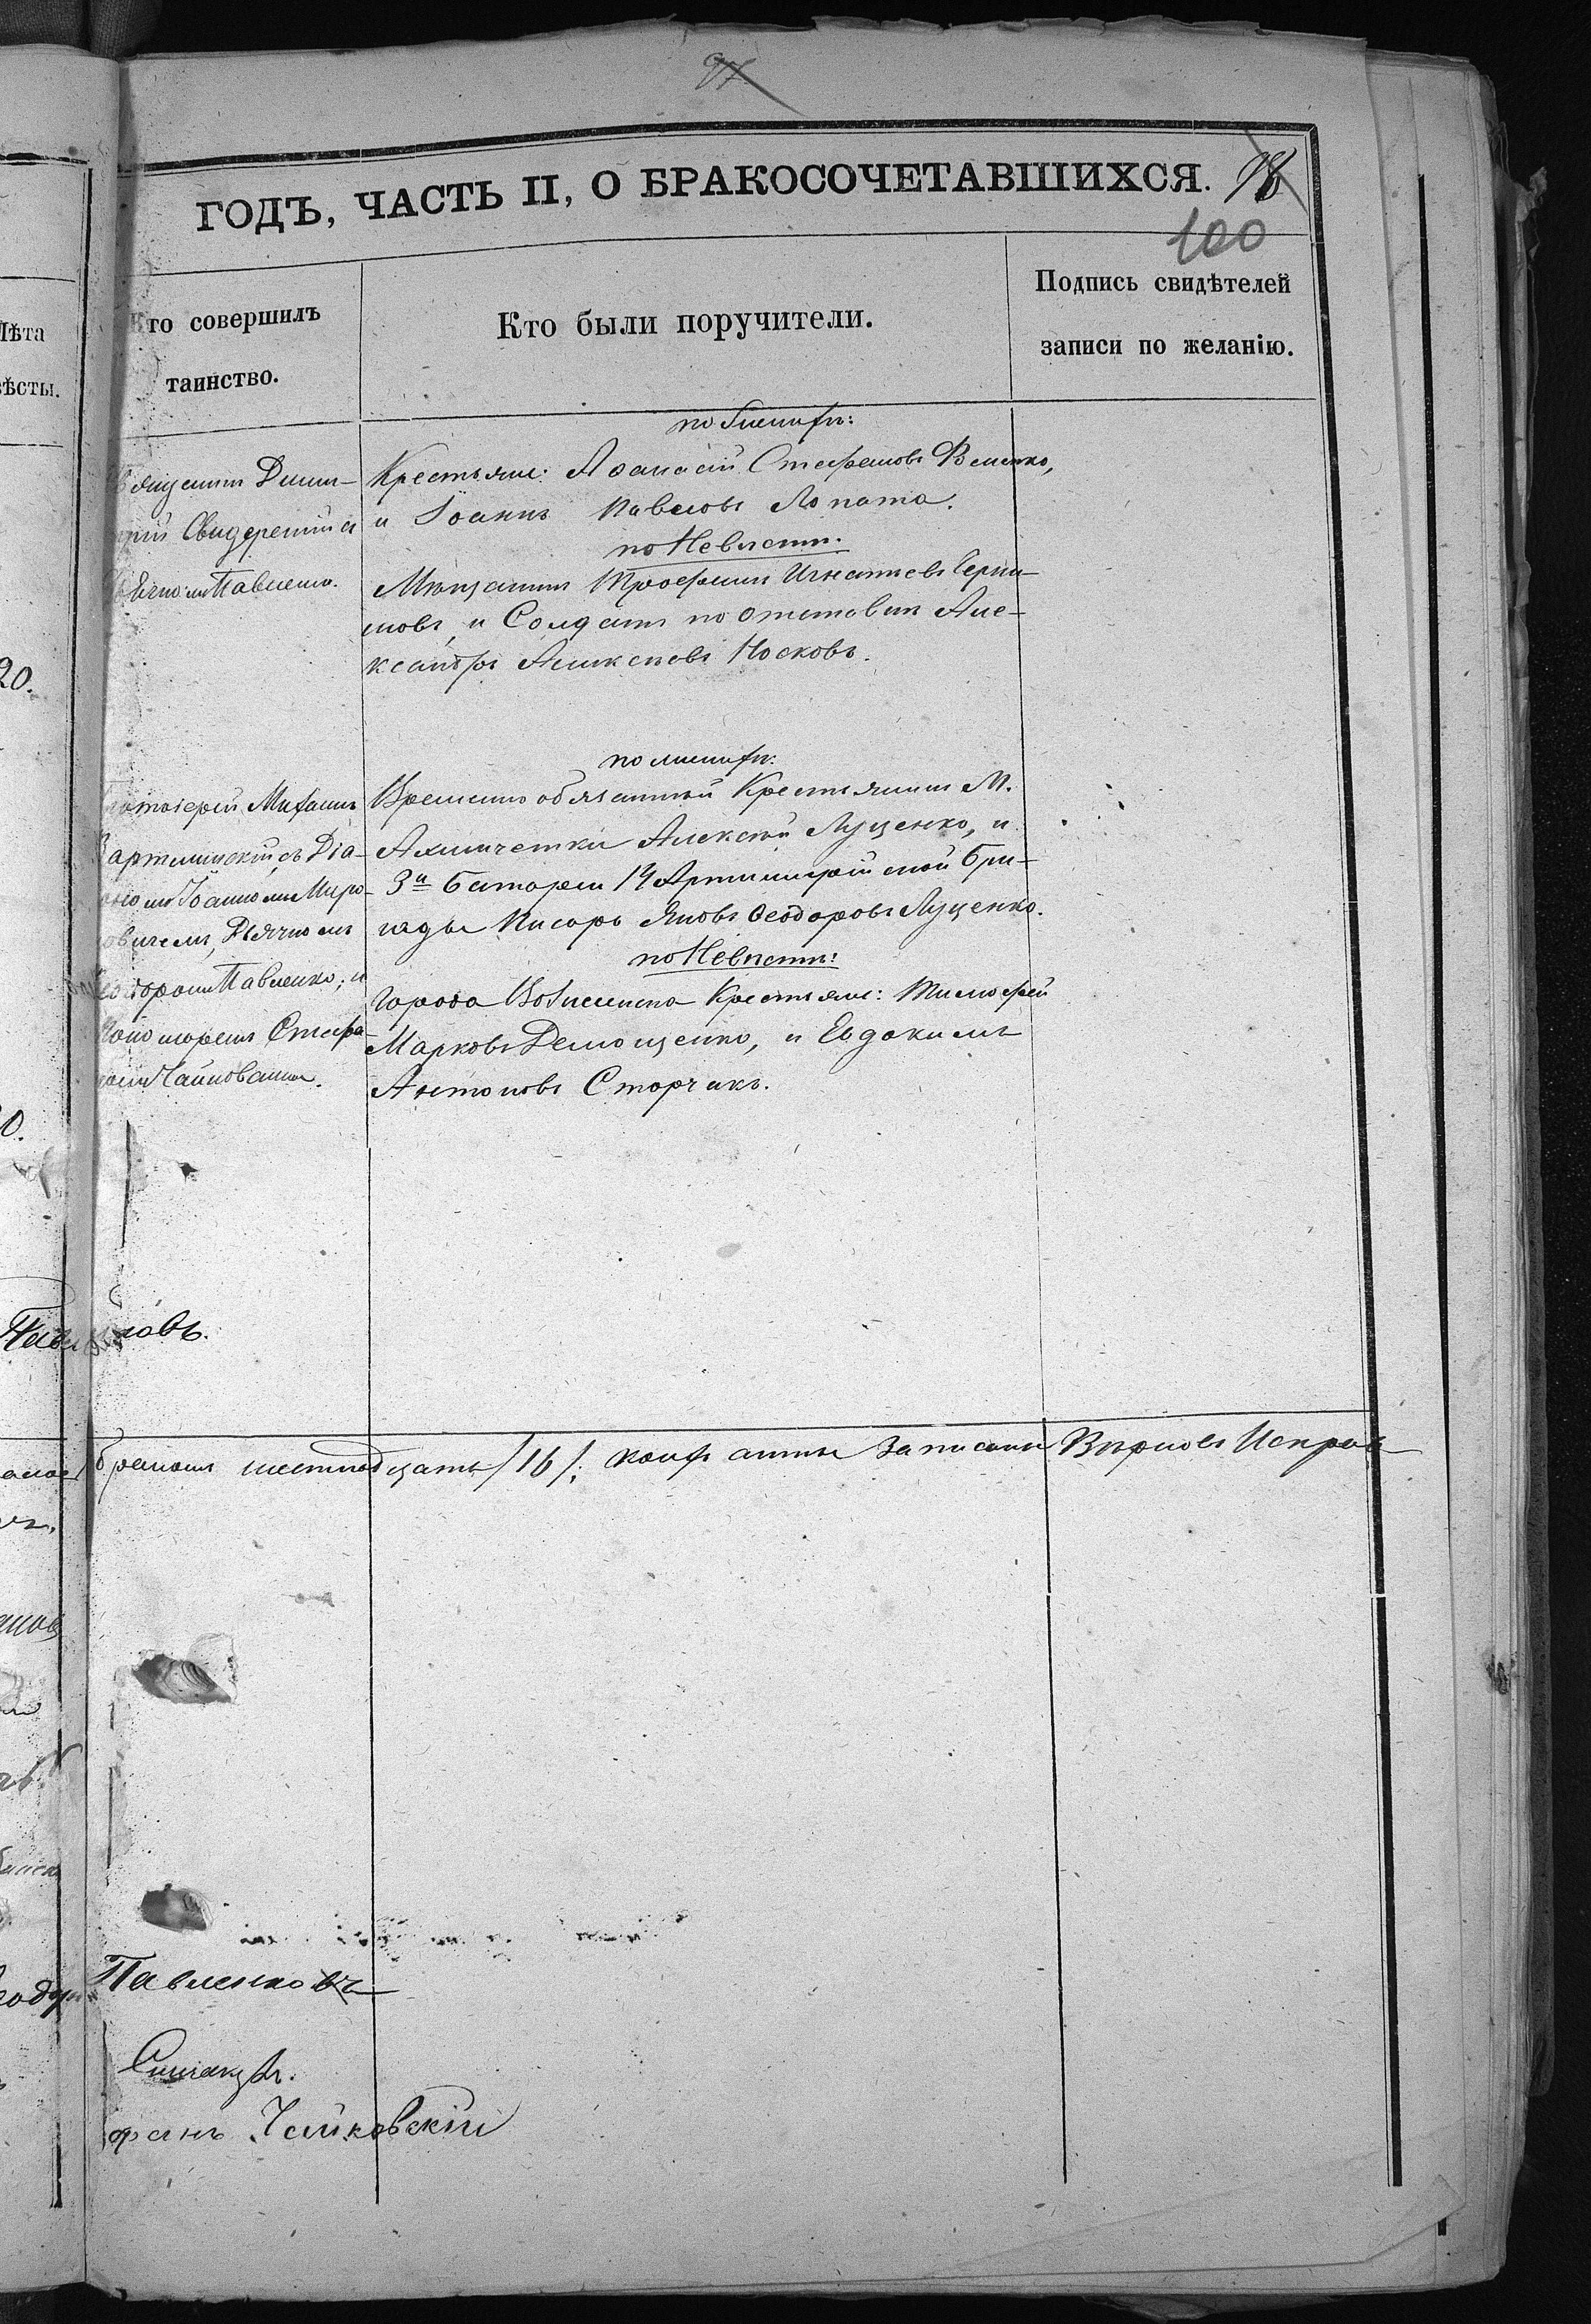 97
ГОДЪ, ЧАСТЬ II, О БРАКОСОЧЕТАВШИХСЯ. 98
100
Лѣта
вѣсты.
Кто совершилъ
таинство.
Кто были поручители.
Подпись свидѣтелей
записи по желанію.
20.
Священникъ Дими-
трій Свидерскій съ
Дьячкомъ Павленко.
по Женихѣ:
Крестьяне: Аѳанасій Стефановъ Величко,
и Іоаннъ Павловъ Лопата.
по Невѣстѣ:
Мѣщанинъ Трофимъ Игнатіевъ
и Солдатъ по отставкѣ Але-
ксандръ Алексѣевъ Носковъ.
0.
Протоіерей Михаилъ
съ Діа-
кономъ Іоанномъ Миро-
овичемъ, Дьячкомъ
Ѳеодоромъ Павленко, и
Пономаремъ Стефа-
номъ
по женихѣ:
Временно обязанный Крестьянинъ М.
Ахмечетки Алексѣй Луценко, и
3й Батареи 14 Артиллерійской Бри-
гады Писарь Яковъ Ѳеодоровъ Луценко.
по Невѣстѣ:
Города Вознесенска Крестьяне: Тимофей
Марковъ Демощенко, и Евдокимъ
Антоновъ Сторчакъ.
ловъ.
бракомъ шестнадцать /16/; кои
записаны Вѣрно
Павленковъ
фанъ Чайковскій